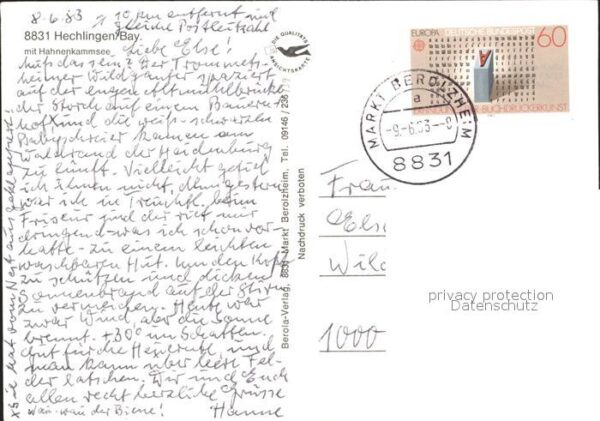 8.6.83
10 km entfernt und
gleiche Postleitzahl
8831 Hechlingen/Bay.
mit Hahnenkammsee
Liebe Else!
Muß das sein? Der Trommets-
heimer Wildganter spaziert
auf der engen Altmühlbrücke
der Storch auf einem Bauern
hof und die weiß-schwarzen
Babyschreier kamen am
Waldrand der Heidenburg
zu
Vielleicht gefiel
ich ihnen nicht, denn gestern
war ich in Treucht. beim
Friseur und der riet mir
dringend - was ich schon vor-
hatte - zu einem leichten
waschbaren Hut. Um den Kopf
zu schützen und dicken
Sonnenbrand auf der Stirn
zu vermeiden. Heute war
zwar Wind, aber die Sonne
brennt. +30° im Schatten.
Gut für die Heuernte, und
man kann über leere Fel-
der latschen. Dir und Euch
allen recht herzliche Grüsse
wau-wau der Biene! Hanne
hat vom Nest aus geklappert!
DIE QUALITÄTS
ANSICHTSKARTE
Berola-Verlag, 8831 Markt Berolzheim, Tel. 09146/236
Nachdruck verboten
EUROPA DEUTSCHE BUNDESPOST 60
BUCHDRUCKERKUNST
MARKT BEROLZHEIM
a
-9.-6.83-8
8831
Frau
Else
Wil
1000
privacy protection
Datenschutz